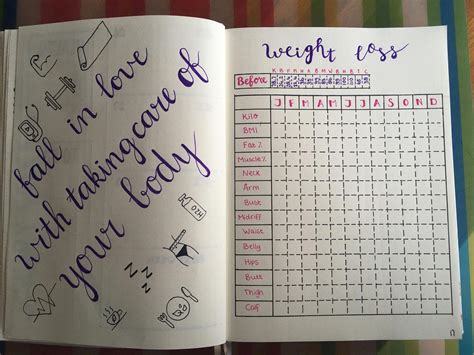 fall in love
with taking care of
your body
H2O
Z Z
Z Z
weight loss
K B F M N A B M W B H B T C
Before
J F M A M J J A S O N D
Kilo
BMI
Fat %
Muscle %
Neck
Arm
Bust
Midriff
Waist
Belly
Hips
Butt
Thigh
Calf